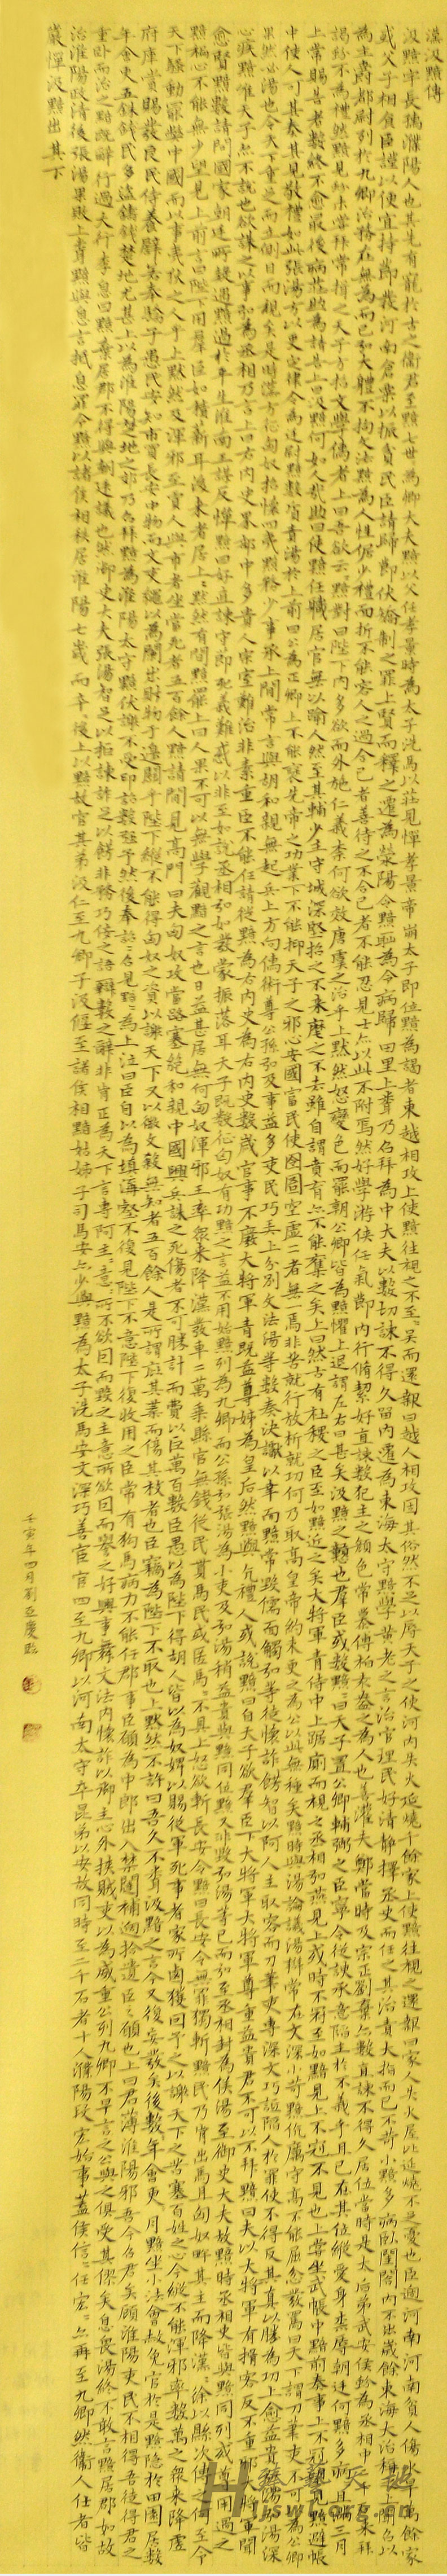 漢汲黯傳
汲黯字長孺濮陽人也其先有寵於古之衛君至黯七世為卿大夫黯以父任孝景時為太子洗馬以莊見憚孝景帝崩太子即位黯為謁者東越相攻上使黯往視之不至吳而還報曰越人相攻固其俗然不足以辱天子之使河內失火延燒千餘家上使黯往視之還報曰家人失火屋比延燒不足憂也臣過河南河南貧人傷水旱萬餘家
或父子相食臣謹以便宜持節發河南倉粟以振貧民臣請歸節伏矯制之罪上賢而釋之遷為滎陽令黯恥為令病歸田里上聞乃召拜為中大夫以數切諫不得久留內遷為東海太守黯學黃老之言治官理民好清靜擇丞史而任之其治責大指而已不苛小黯多病臥閨閤內不出歲餘東海大治稱之上聞召以
為主爵都尉列於九卿治務在無為而已弘大體不拘文法黯為人性倨少禮面折不能容人之過合己者善待之不合己者不能忍見士亦以此不附焉然好學游俠任氣節內行脩絜好直諫數犯主之顏色常慕傅柏袁盎之為人也善灌夫鄭當時及宗正劉棄亦數直諫不得久居位當時是太后弟武安侯蚡為丞相中二千石來拜
謁蚡不為禮然黯見蚡未嘗拜常揖之天子方招文學儒者上曰吾欲云云黯對曰陛下內多欲而外施仁義柰何欲效唐虞之治乎上默然怒變色而罷朝公卿皆為黯懼上退謂左右曰甚矣汲黯之戇也群臣或數黯黯曰天子置公卿輔弼之臣寧令從諛承意陷主於不義乎且已在其位縱愛身柰辱朝廷何黯多病病且滿三月
上常賜告者數終不愈最後病莊助為請告上曰汲黯何如人哉助曰使黯任職居官無以踰人然至其輔少主守城深堅招之不來麾之不去雖自謂賁育亦不能奪之矣上曰然古有社稷之臣至如黯近之矣大將軍青侍中上踞廁而視之丞相弘燕見上或時不冠至如黯見上不冠不見也上嘗坐武帳中黯前奏事上不冠望見黯避帳
中使人可其奏其見敬禮如此張湯方以更定律令為廷尉黯數質責湯於上前曰公為正卿上不能襃先帝之功業下不能抑天子之邪心安國富民使囹圄空虛二者無一焉非苦就行放析就功何乃取高皇帝約束更之為公以此無種矣黯時與湯論議湯辯常在文深小苛黯伉厲守高不能屈忿發罵曰天下謂刀筆吏不可以為公卿
果然必湯也令天下重足而立側目而視矣是時漢方征匈奴招懷四夷黯務少事承上間常言與胡和親無起兵上方向儒術尊公孫弘及事益多吏民巧上分別文法湯等數奏決讞以幸而黯常毀儒面觸弘等徒懷詐飾智以阿人主取容而刀筆吏專深文巧詆陷人於罪使不得反其真以勝為功上愈益貴弘湯弘湯深
心疾黯唯天子亦不說也欲誅之以事弘為丞相乃言上曰右內史界部中多貴人宗室難治非素重臣不能任請徙黯為右內史為右內史數歲官事不廢大將軍青既益尊姊為皇后然黯與亢禮人或說黯曰自天子欲群臣下大將軍大將軍尊重益貴君不可以不拜黯曰夫以大將軍有揖客反不重邪大將軍聞
愈賢黯數請問國家朝廷所疑遇黯過於平生淮南王謀反憚黯曰好直諫守節死義難惑以非至如說丞相弘如發蒙振落耳天子既數征匈奴有功黯之言益不用始黯列為九卿而公孫弘張湯為小吏及弘湯稍益貴與黯同位黯又非毀弘湯等已而弘至丞相封為侯湯至御史大夫故黯時丞相史皆與黯同列或尊用過之
黯褊心不能無少望見上前言曰陛下用群臣如積薪耳後來者居上上默然有間黯罷上曰人果不可以無學觀黯之言也日益甚居無何匈奴渾邪王率眾來降漢發車二萬乘縣官無錢從民貰馬民或匿馬馬不具上怒欲斬長安令黯曰長安令無罪獨斬黯民乃肯出馬且匈奴畔其主而降漢漢徐以縣次傳之何至令
天下騷動罷獘中國而以事夷狄之人乎上默然及渾邪至賈人與市者坐當死者五百餘人黯請間見高門曰夫匈奴攻當路塞絕和親中國興兵誅之死傷者不可勝計而費以巨萬百數臣愚以為陛下得胡人皆以為奴婢以賜從軍死事者家所鹵獲因予之以謝天下之苦塞百姓之心今縱不能渾邪率數萬之眾來降虛
府庫賞賜發良民侍養譬若奉驕子愚民安知市買長安中物而文吏繩以為闌出財物于邊關乎陛下縱不能得匈奴之資以謝天下又以微文殺無知者五百餘人是所謂庇其葉而傷其枝者也臣竊為陛下不取也上默然不許曰吾久不聞汲黯之言今又復妄發矣後數月黯坐小法會赦免官於是黯隱於田園居數
年會更五銖錢民多盜鑄錢楚地尤甚上以為淮陽楚地之郊乃召拜黯為淮陽太守黯伏謝不受印詔數彊予然後奉詔詔召見黯黯為上泣曰臣自以為填溝壑不復見陛下不意陛下復收用之臣常有狗馬病力不能任郡事臣願為中郎出入禁闥補過拾遺臣之願也上曰君薄淮陽邪吾今召君矣顧淮陽吏民不相得吾徒得君之
重臥而治之黯既辭行過大行李息曰黯棄居郡不得與朝廷議也然御史大夫張湯智足以拒諫詐足以飾非務巧佞之語辯數之辭非肯正為天下言專阿主意主意所不欲因而毀之主意所欲因而譽之好興事舞文法內懷詐以御主心外挾賊吏以為威重公列九卿不早言之公與之俱受其僇矣息畏湯終不敢言黯居郡如故
治淮陽政清後張湯果敗上聞黯與息言抵息罪令黯以諸侯相秩居淮陽七歲而卒卒後上以黯故官其弟汲仁至九卿子汲偃至諸侯相黯姑姊子司馬安亦少與黯為太子洗馬安文深巧善宦官四至九卿以河南太守卒昆弟以安故同時至二千石者十人濮陽段宏始事蓋侯信信任宏宏亦再至九卿然衛人仕者皆
嚴憚汲黯出其下
壬寅年四月劉亞慶臨